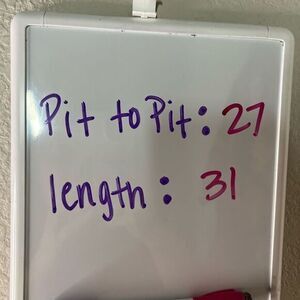 Pit to Pit: 27
length: 31